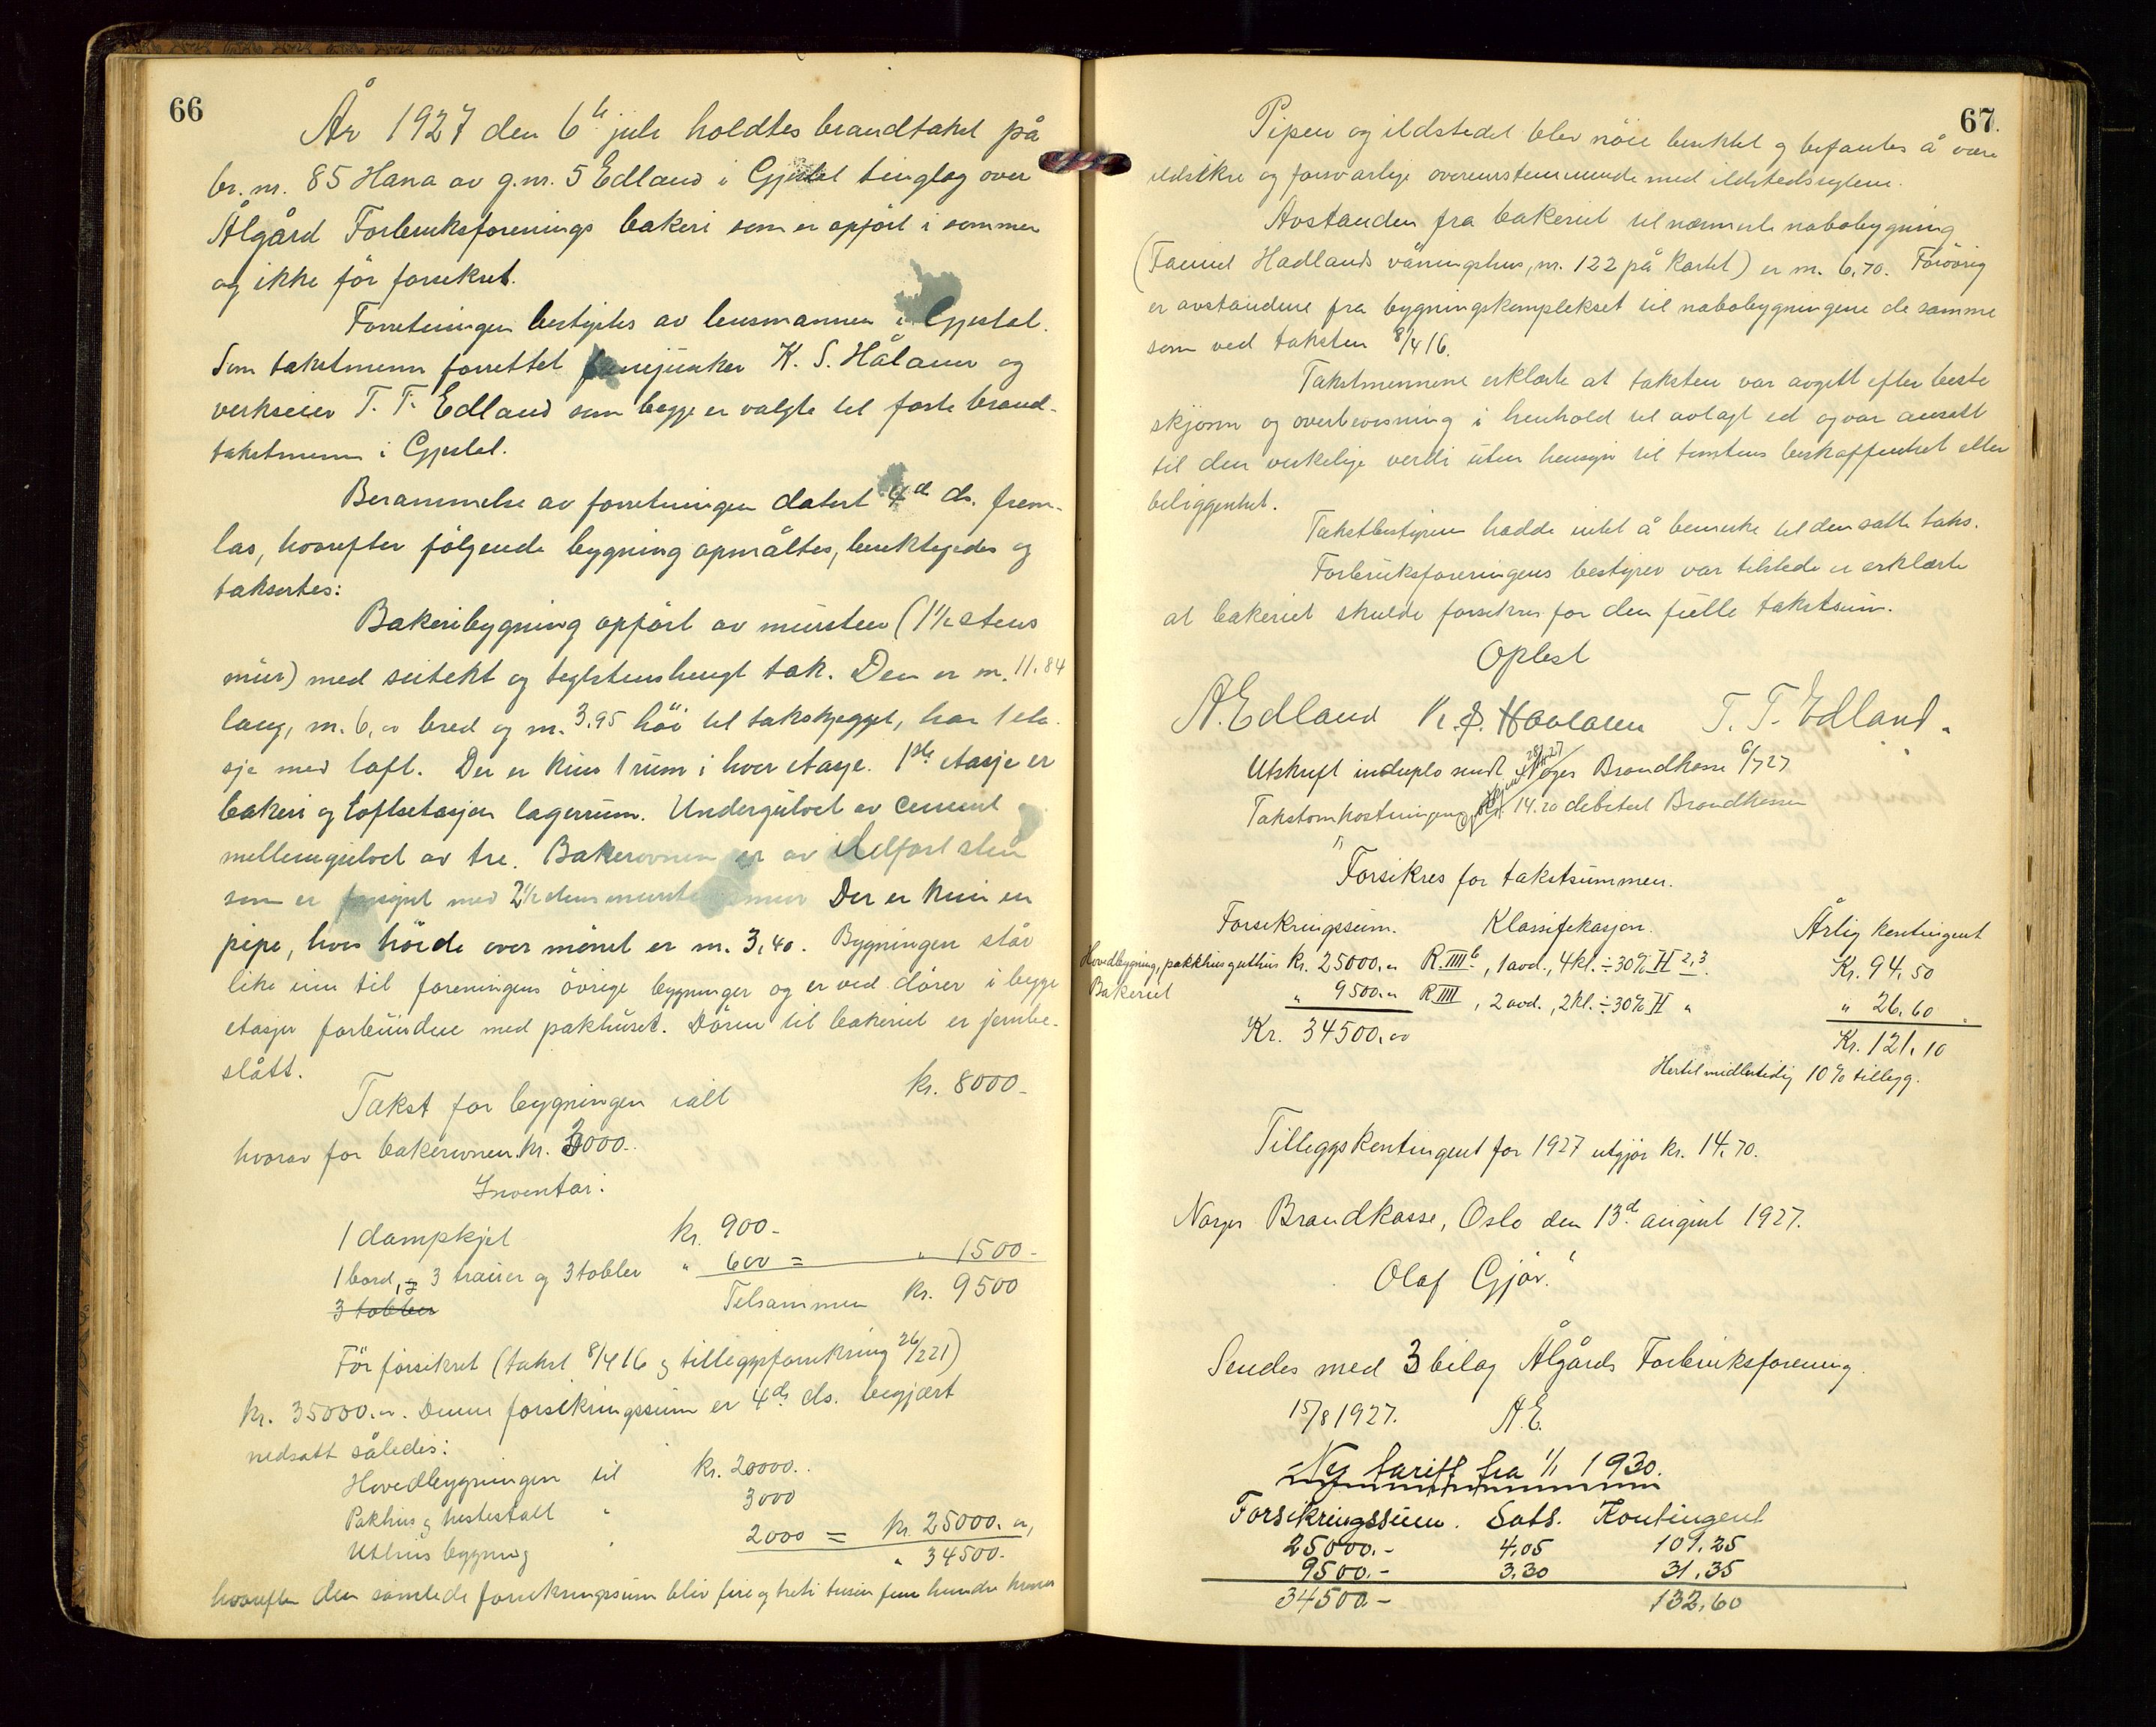 66
År 1927 den 6te juli holdtes brandtakst på
br. nr. 85 Hana av g.nr. 5 Edland i Gjestal tinglag over
Ålgård Forbruksforenings bakeri som er opført i sommer
og ikke før forsikret.
Forretningen bestyrtes av lensmannen i Gjestal.
Som takstmenn forrettet K. S. Håland og
verkseier T. T. Edland som begge er valgte til faste brand-
takstmenn i Gjestal.
Berammelse av forretningen datert 4de ds. frem-
las, hvorefter følgende bygning opmåltes, besiktigedes og
taksertes:
Bakeribygning opført av mursten (1½ stens
mur) med sutekt og teglstenshengt tak. Den er m. 11.84
lang, m. 6,00 bred og m. 3.95 høi til takskjegget, har 1 eta-
sje med loft. Der er kun 1 rum i hver etasje. 1ste etasje er
bakeri og loftsetasjen lagerrum. Undergulvet av cement og
mellemgulvet av tre. Bakerovnen er av ildfast sten
som er forsynt med 2½ stens murstensmur Der er kun en
pipe, hvis høide over mønet er m. 3,40. Bygningen står
like inn til foreningens øvrige bygninger og er ved dører i begge
etasjer forbundne med pakhuset. Døren til bakeriet er jernbe-
slått.
Takst for bygningen ialt kr. 8000-
hvorav for bakerovnen kr. 3000..
Inventar:
1 dampkjel kr. 900-
1 bord, 3 trauer og 3 tobler " 600 = " 1500-
3 tobler
Tilsammen kr. 9500
Før forsikret (takst 8/4 16 og tilleggsforsikring 26/2 21)
kr. 35000.00. Denne forsikringssum er 4de ds. begjært
nedsatt således:
Hovedbygningen til kr. 20000..
Pakhus og hestestall " 3000
Uthusbygning " 2000 = kr. 25000.00,
" 34500.
hvorefter den samlede forsikringssum blir fire og treti tusen fem hundre kroner
67.
Pipen og ildstedet blev nøie besiktet og befantes å være
ildsikre og forsvarlige overensstemmende med ildstedsreglene.
Avstanden fra bakeriet til nærmeste nabobygning
(Hadlands våningshus, nr. 122 på kartet) er m. 6,70. Forøvrig
er avstandene fra bygningskomplekset til nabobygningene de samme
som ved taksten 8/4 16.
Takstmennene erklærte at taksten var avgitt efter beste
skjønn og overbevisning i henhold til avlagt ed og var ansatt
til den virkelige verdi uten hensyn til tomtens beskaffenhet eller
beliggenhet.
Takstbestyreren hadde intet å bemerke til den satte takst.
Forbruksforeningens bestyrer var tilstede og erklærte
at bakeriet skulde forsikres for den fulle takstsum.
Oplest
A. Edland K. S. Haaland T. T. Edland.
Utskrift in duplo sendt Norges Brandkasse 6/7 27
Takstomkostningene kr. 14.20 debitert Brandkassen
Forsikres for takstsummen.
Forsikringssum. Klassifikasjon. Årlig kontingent
Hovedbygning, pakkhus og uthus kr. 25000.00 R. IIII b, 1 avd., 4 kl. ÷ 30% H 2,3. Kr. 94,50
Bakeriet " 9500.00 R IIII, 2 avd., 2 kl. ÷ 30% H " " 26,60
Kr. 34500.00 Kr. 121,10
Hertil midlertidig 10% tillegg.
Tilleggskontingent for 1927 utgjør kr. 14.70.
Norges Brandkasse, Oslo den 13d. august 1927.
Olaf Gjør.
Sendes med 3 bilag Ålgårds Forbruksforening.
15/8 1927. A.E.
Ny tariff fra 1/1 1930.
Forsikringssum. Sats. Kontingent
25000.- 4,05 101,25
9500.- 3,30 31,35
34500.- 132,60